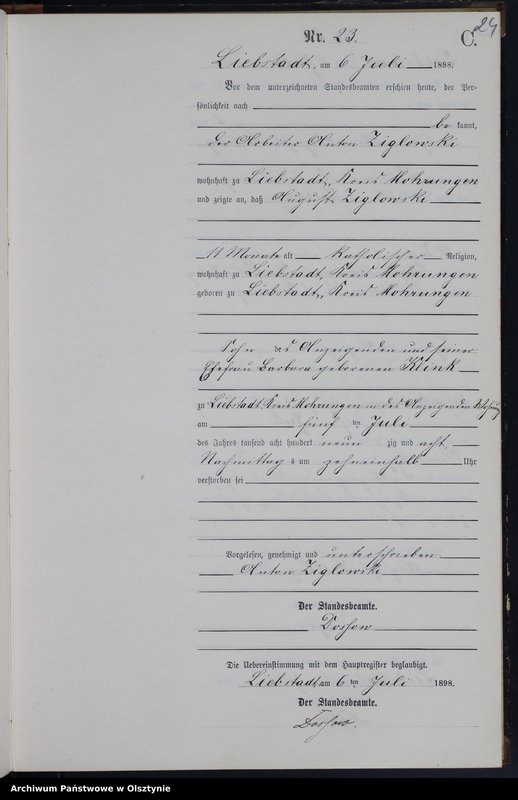 24
Nr. 23. C.
Liebstadt, am 6 Juli 1898.
Vor dem unterzeichneten Standesbeamten erschien heute, der Per-
sönlichkeit nach
be kannt,
der Arbeiter Anton Ziglowski
wohnhaft zu Liebstadt, Kreis Mohrungen
und zeigte an, daß August Ziglowski
11 Monate alt katholischer Religion,
wohnhaft zu Liebstadt, Kreis Mohrungen
geboren zu Liebstadt, Kreis Mohrungen
Sohn des Anzeigenden und seiner
Ehefrau Barbara geborenen Klink
zu Liebstadt Kreis Mohrungen in des Anzeigenden Wohnung
am fünf ten Juli
des Jahres tausend acht hundert neun zig und acht
Nachmittags um zehneinhalb Uhr
verstorben sei
Vorgelesen, genehmigt und unterschrieben
Anton Ziglowski
Der Standesbeamte.
Dossow
Die Uebereinstimmung mit dem Hauptregister beglaubigt.
Liebstadt am 6 ten Juli 1898.
Der Standesbeamte.
Dossow.
Archiwum Państwowe w Olsztynie